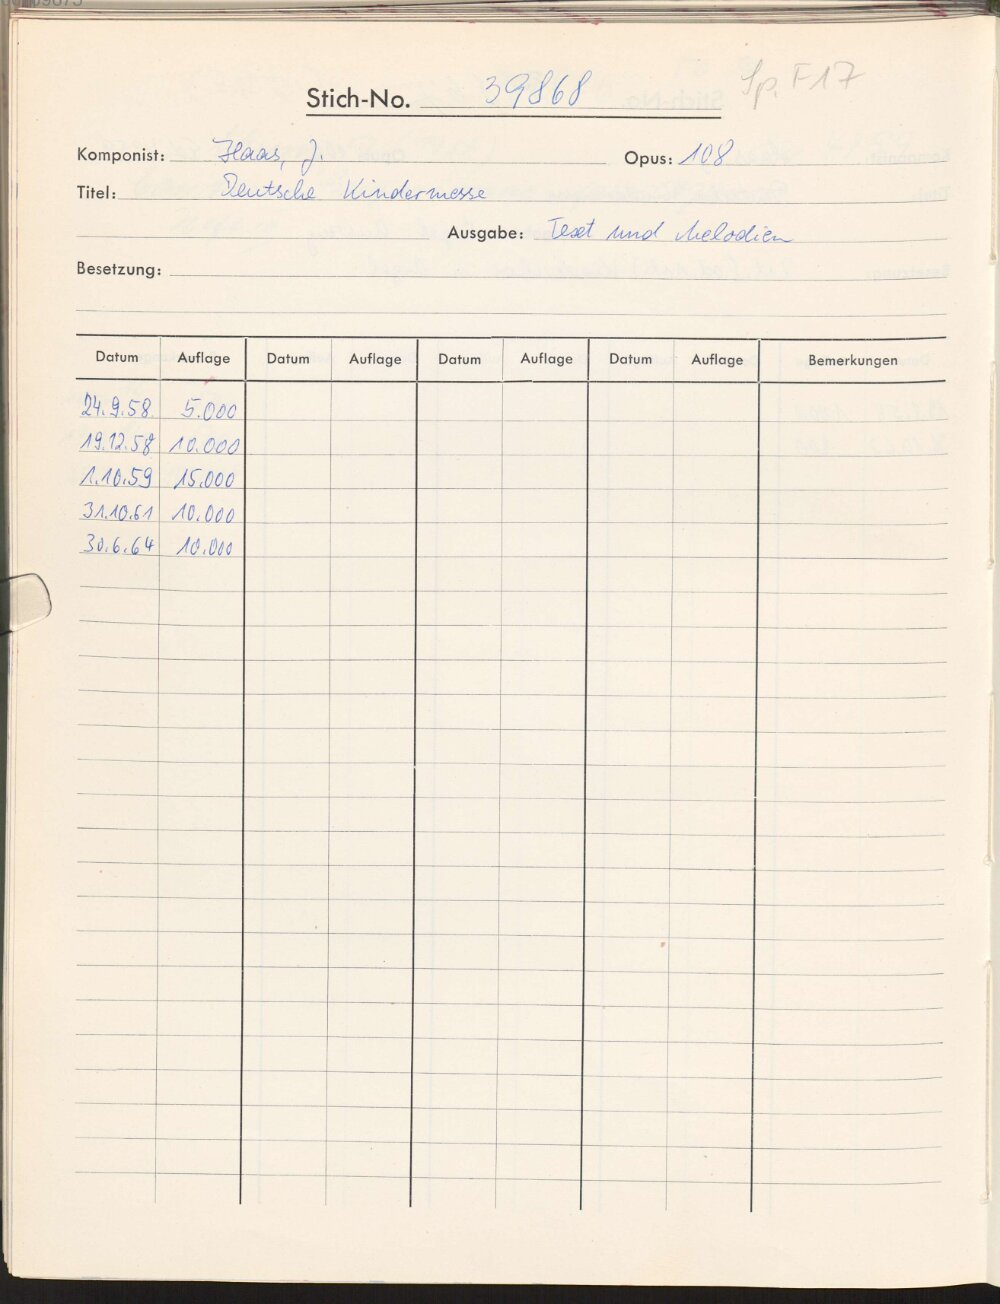 Stich-No. 39868 Sp. F17
Komponist: Haas, J. Opus: 108
Titel: Deutsche Kindermesse
Ausgabe: Text und Melodien
Besetzung:
Datum Auflage Datum Auflage Datum Auflage Datum Auflage Bemerkungen
24.9.58. 5.000
19.12.58 10.000
1.10.59 15.000
31.10.61 10.000
30.6.64 10.000